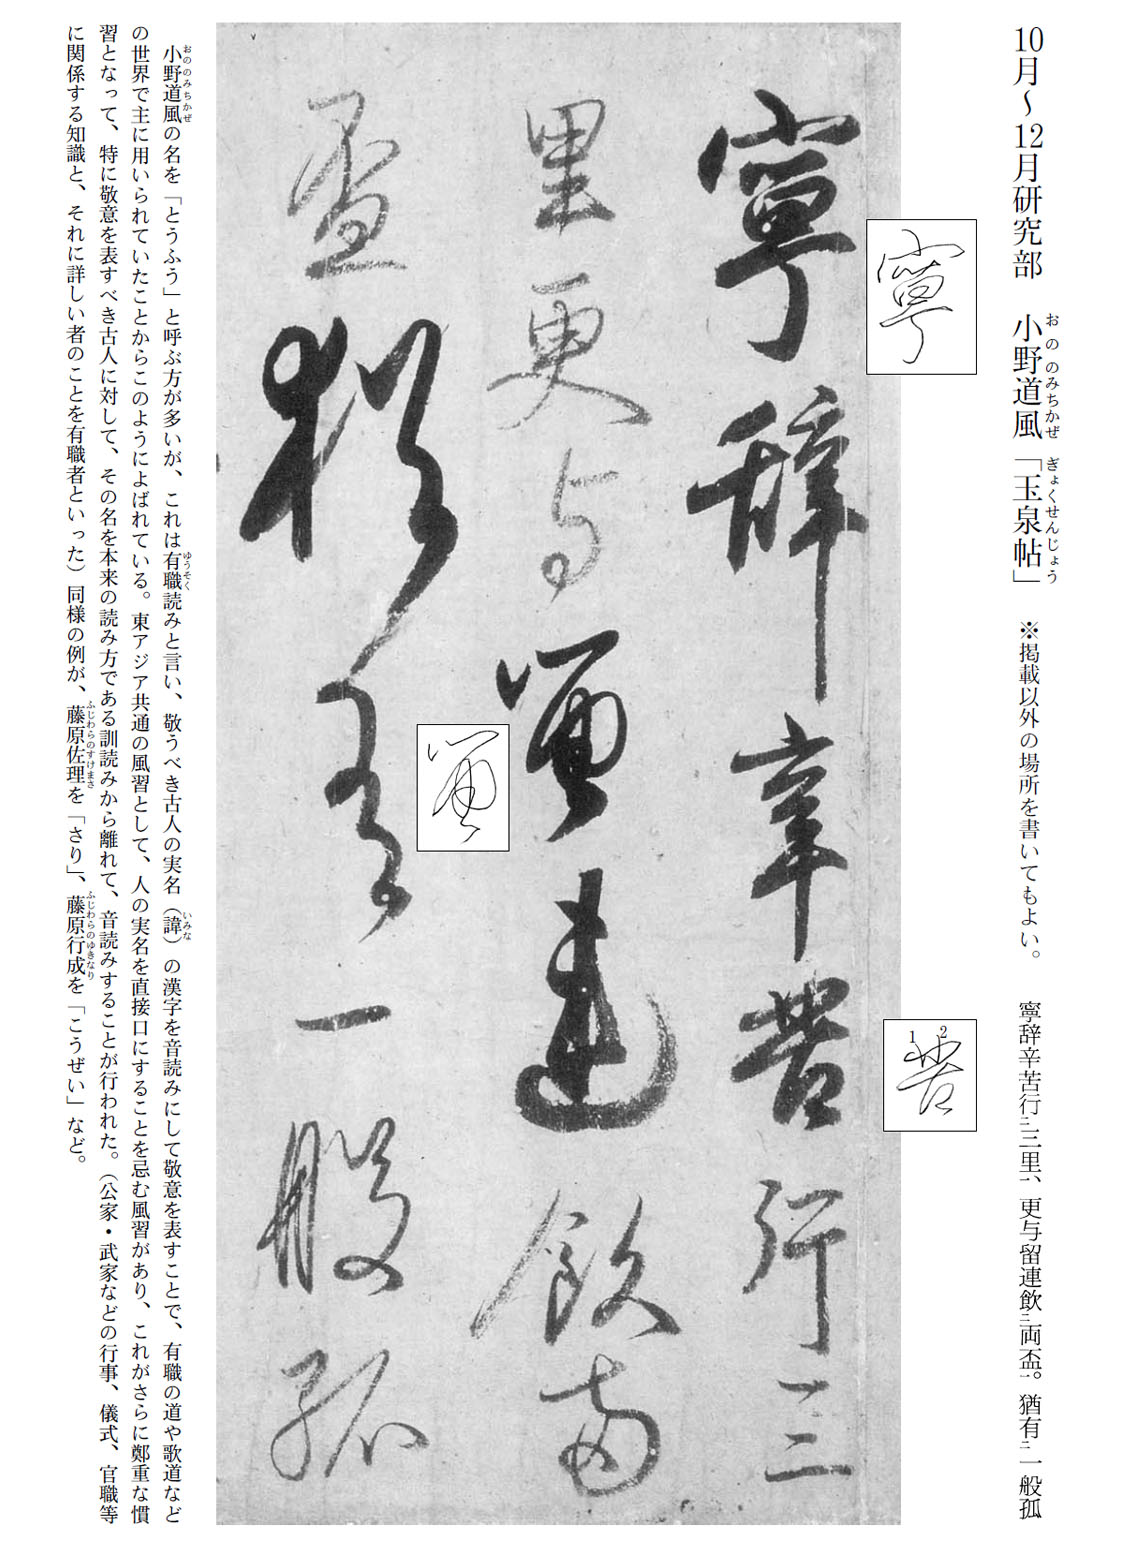 10月～12月研究部　小野道風「玉泉帖」　※掲載以外の場所を書いてもよい。　寧辞辛苦行二三里一、更与留連飲二両盃一。猶有二一般孤
おののみちかぜ
ぎょくせんじょう
寧
苦
1
2
寧辞辛苦行三
里更与留連飲両
盃猶有一般孤
留
小野道風の名を「とうふう」と呼ぶ方が多いが、これは有職読みと言い、敬うべき古人の実名（諱）の漢字を音読みにして敬意を表すことで、有職の道や歌道など
おののみちかぜ
ゆうそく
いみな
の世界で主に用いられていたことからこのようによばれている。東アジア共通の風習として、人の実名を直接口にすることを忌む風習があり、これがさらに鄭重な慣
習となって、特に敬意を表すべき古人に対して、その名を本来の読み方である訓読みから離れて、音読みすることが行われた。（公家・武家などの行事、儀式、官職等
に関係する知識と、それに詳しい者のことを有職者といった）同様の例が、藤原佐理を「さり」、藤原行成を「こうぜい」など。
ふじわらのすけまさ
ふじわらのゆきなり